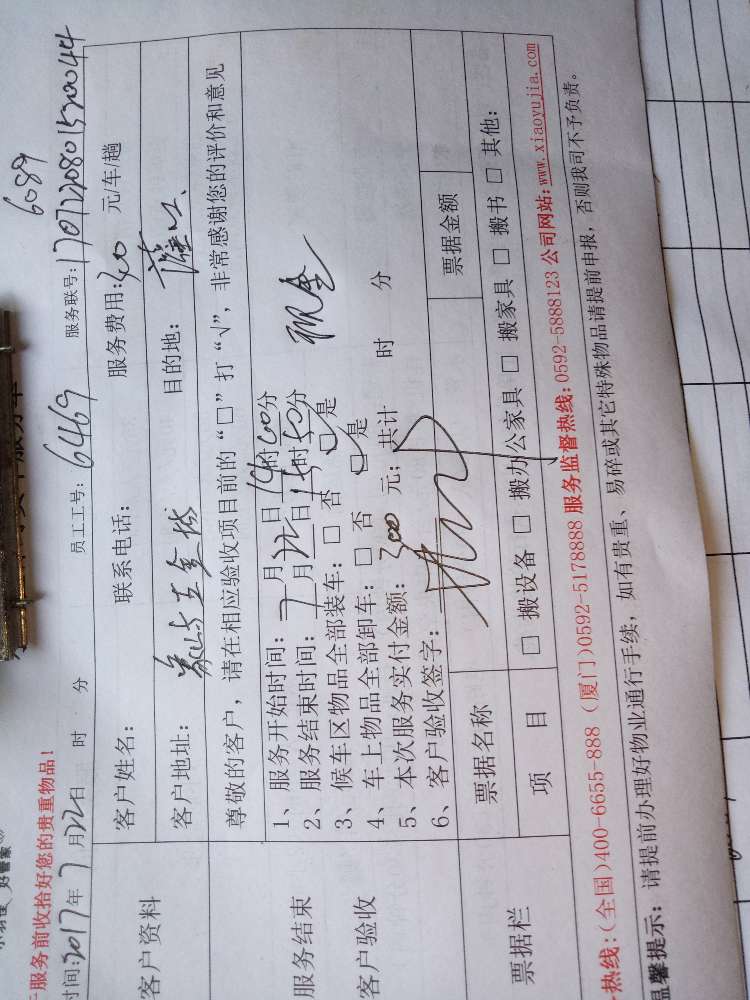 服务前收拾好您的贵重物品！
时间:2017年7月22日 时 分 员工工号:6469 服务联号:1707220801520044
6089
客户资料
客户姓名: 联系电话: 服务费用:300 元/车/趟
客户地址: 目的地:
尊敬的客户，请在相应验收项目前的“□”打“√”，非常感谢您的评价和意见
服务结束
客户验收
1、服务开始时间: 7 月 22 日 14时00分
2、服务结束时间: 月 日 时50分
3、候车区物品全部装车: □ 否 □是
4、车上物品全部卸车: □ 否 □是
5、本次服务实付金额: 300 元; 共计 时 分
现金
6、客户验收签字:
票据栏
票据名称 票据金额
项 目 □ 搬设备 □ 搬办公家具 □ 搬家具 □ 搬书 □ 其他:
热线:(全国)400-6655-888 (厦门)0592-5178888 服务监督热线:0592-5888123 公司网站:www.xiaoyujia.com
温馨提示: 请提前办理好物业通行手续, 如有贵重、易碎或其它特殊物品请提前申报, 否则我司不予负责。